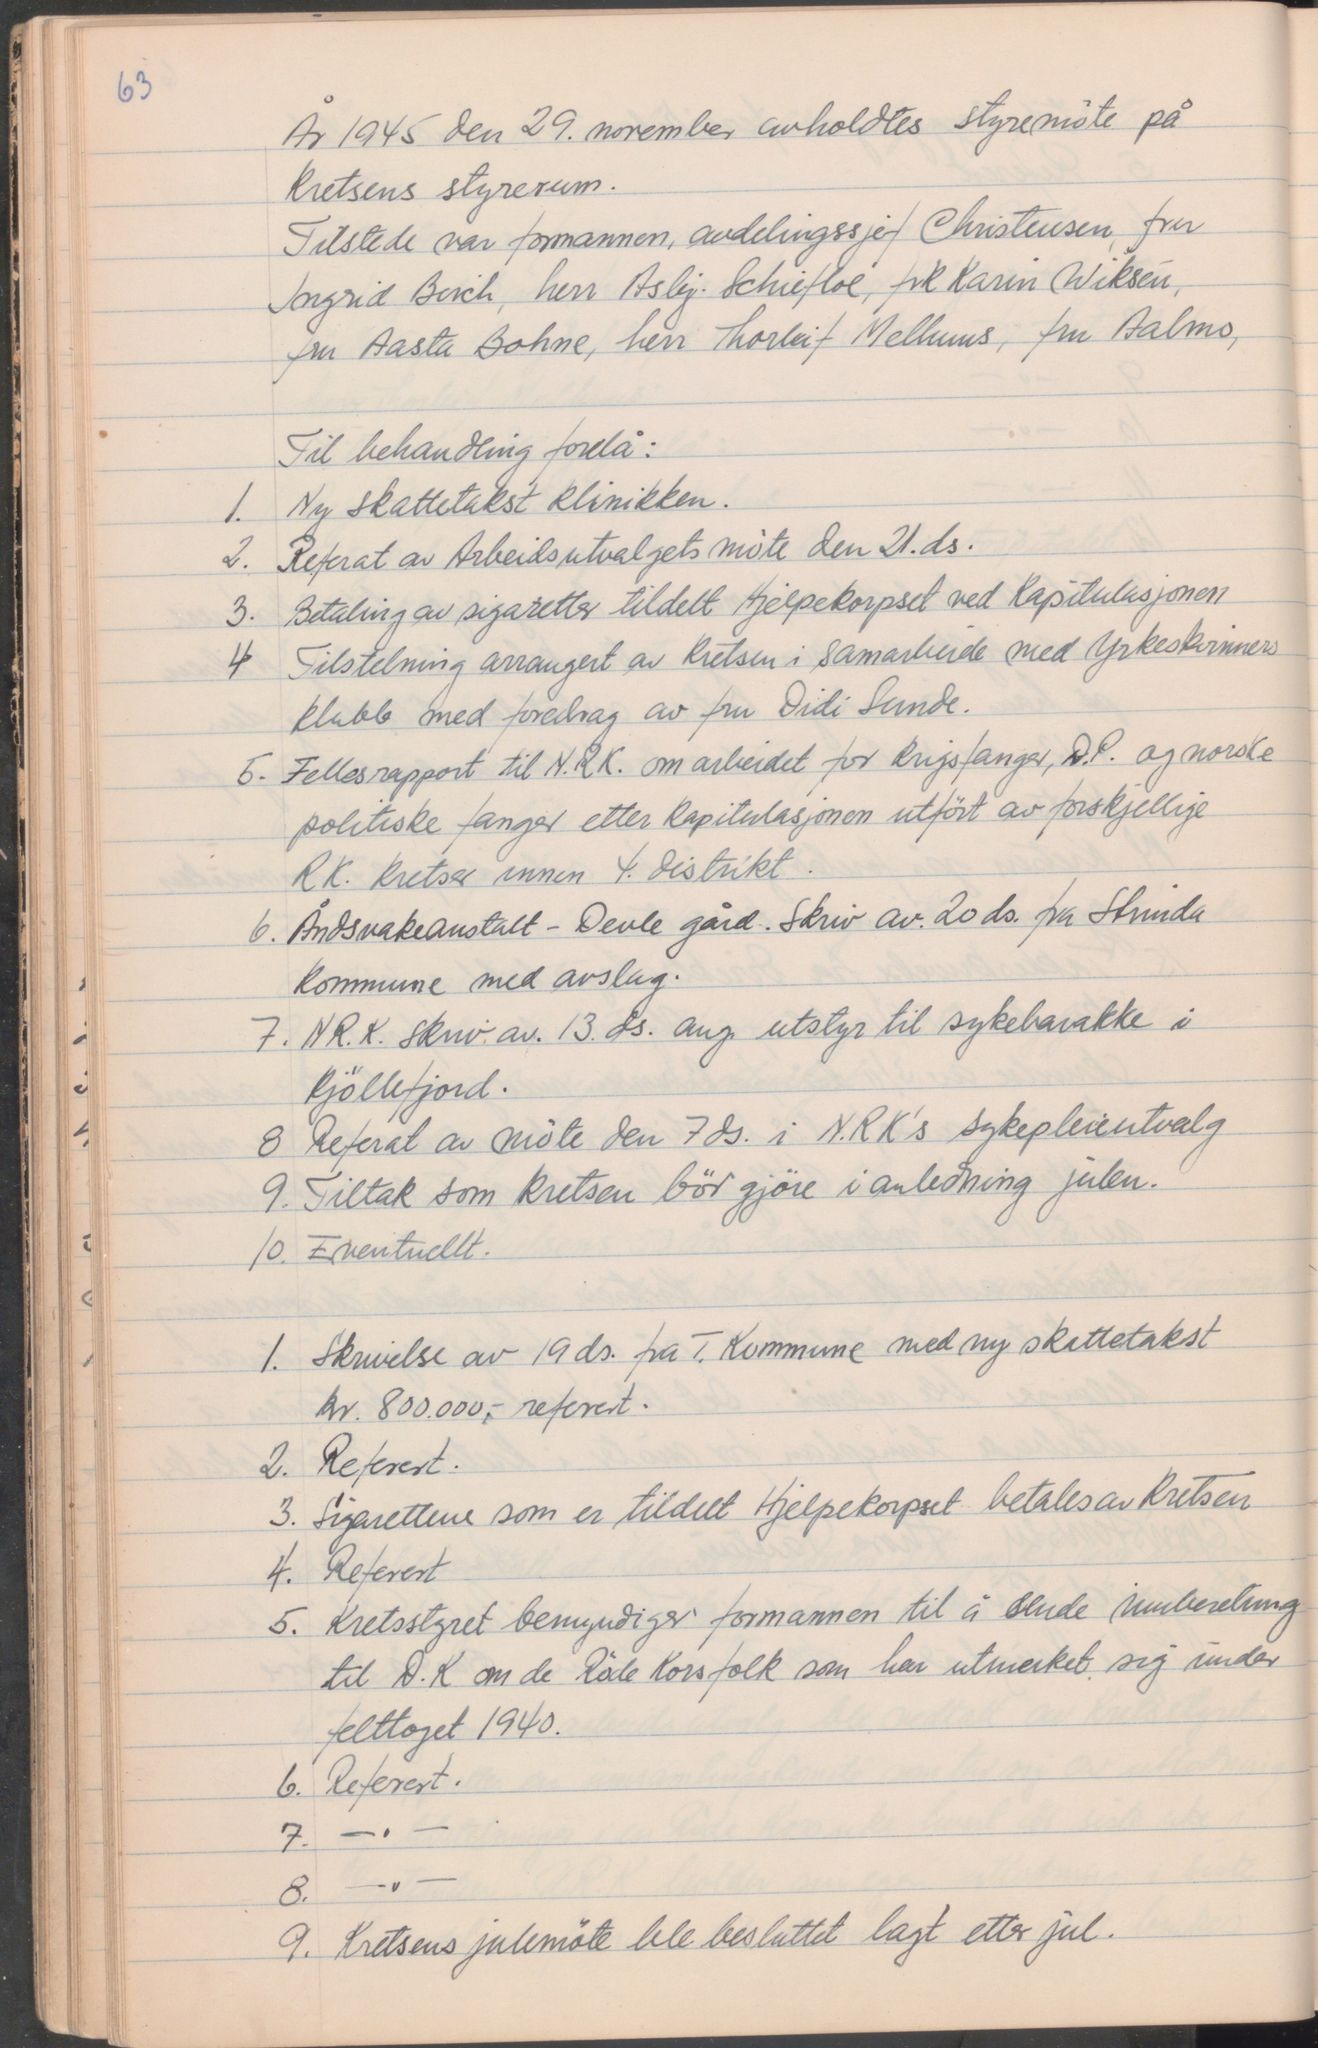 63
År 1945 den 29. november avholdtes styremöte på
Kretsens styrerum.
Tilstede var formannen, avdelingssjef Christensen, fru
Ingrid Birch, herr Asbj. Schiefloe, frk Karin Wiksén,
fru Aasta Bohne, herr Thorleif Melhuus, fru Aalmo,
Til behandling forelå:
1. Ny skattetakst klinikken.
2. Referat av Arbeidsutvalgets möte den 21. ds.
3. Betaling av sigaretter tildelt Hjelpekorpset ved Kapitulasjonen
4 Tilstelning arrangert av Kretsen i samarbeide med Yrkeskvinners
klubb med foredrag av fru Didi Sunde.
5. Fellesrapport til N.R.K. om arbeidet for krigsfanger, D.P. og norske
politiske fanger etter kapitulasjonen utfört av forskjellige
R.K. kretser innen 4. distrikt.
6. Åndsvakeanstalt - Devle gård. Skriv av. 20 ds. fra Strinda
Kommune med avslag.
7. N.R.K. skriv. av. 13. ds. ang. utstyr til sykebarakke i
Kjöllefjord.
8 Referat av möte den 7 ds. i N.R.K's sykepleieutvalg
9. Tiltak som kretsen bör gjöre i anledning julen.
10. Eventuellt.
1. Skrivelse av 19 ds. fra T. Kommune med ny skattetakst
kr. 800.000,- referert.
2. Referert.
3. Sigarettene som er tildelt Hjelpekorpset betales av Kretsen
4. Referert
5. Kretsstyret bemyndiger formannen til å sende innberetning
til D.K om de Röde Kors folk som har utmerket sig under
felttoget 1940.
6. Referert.
7. -"-
8. -"-
9. Kretsens julemöte ble besluttet lagt etter jul.